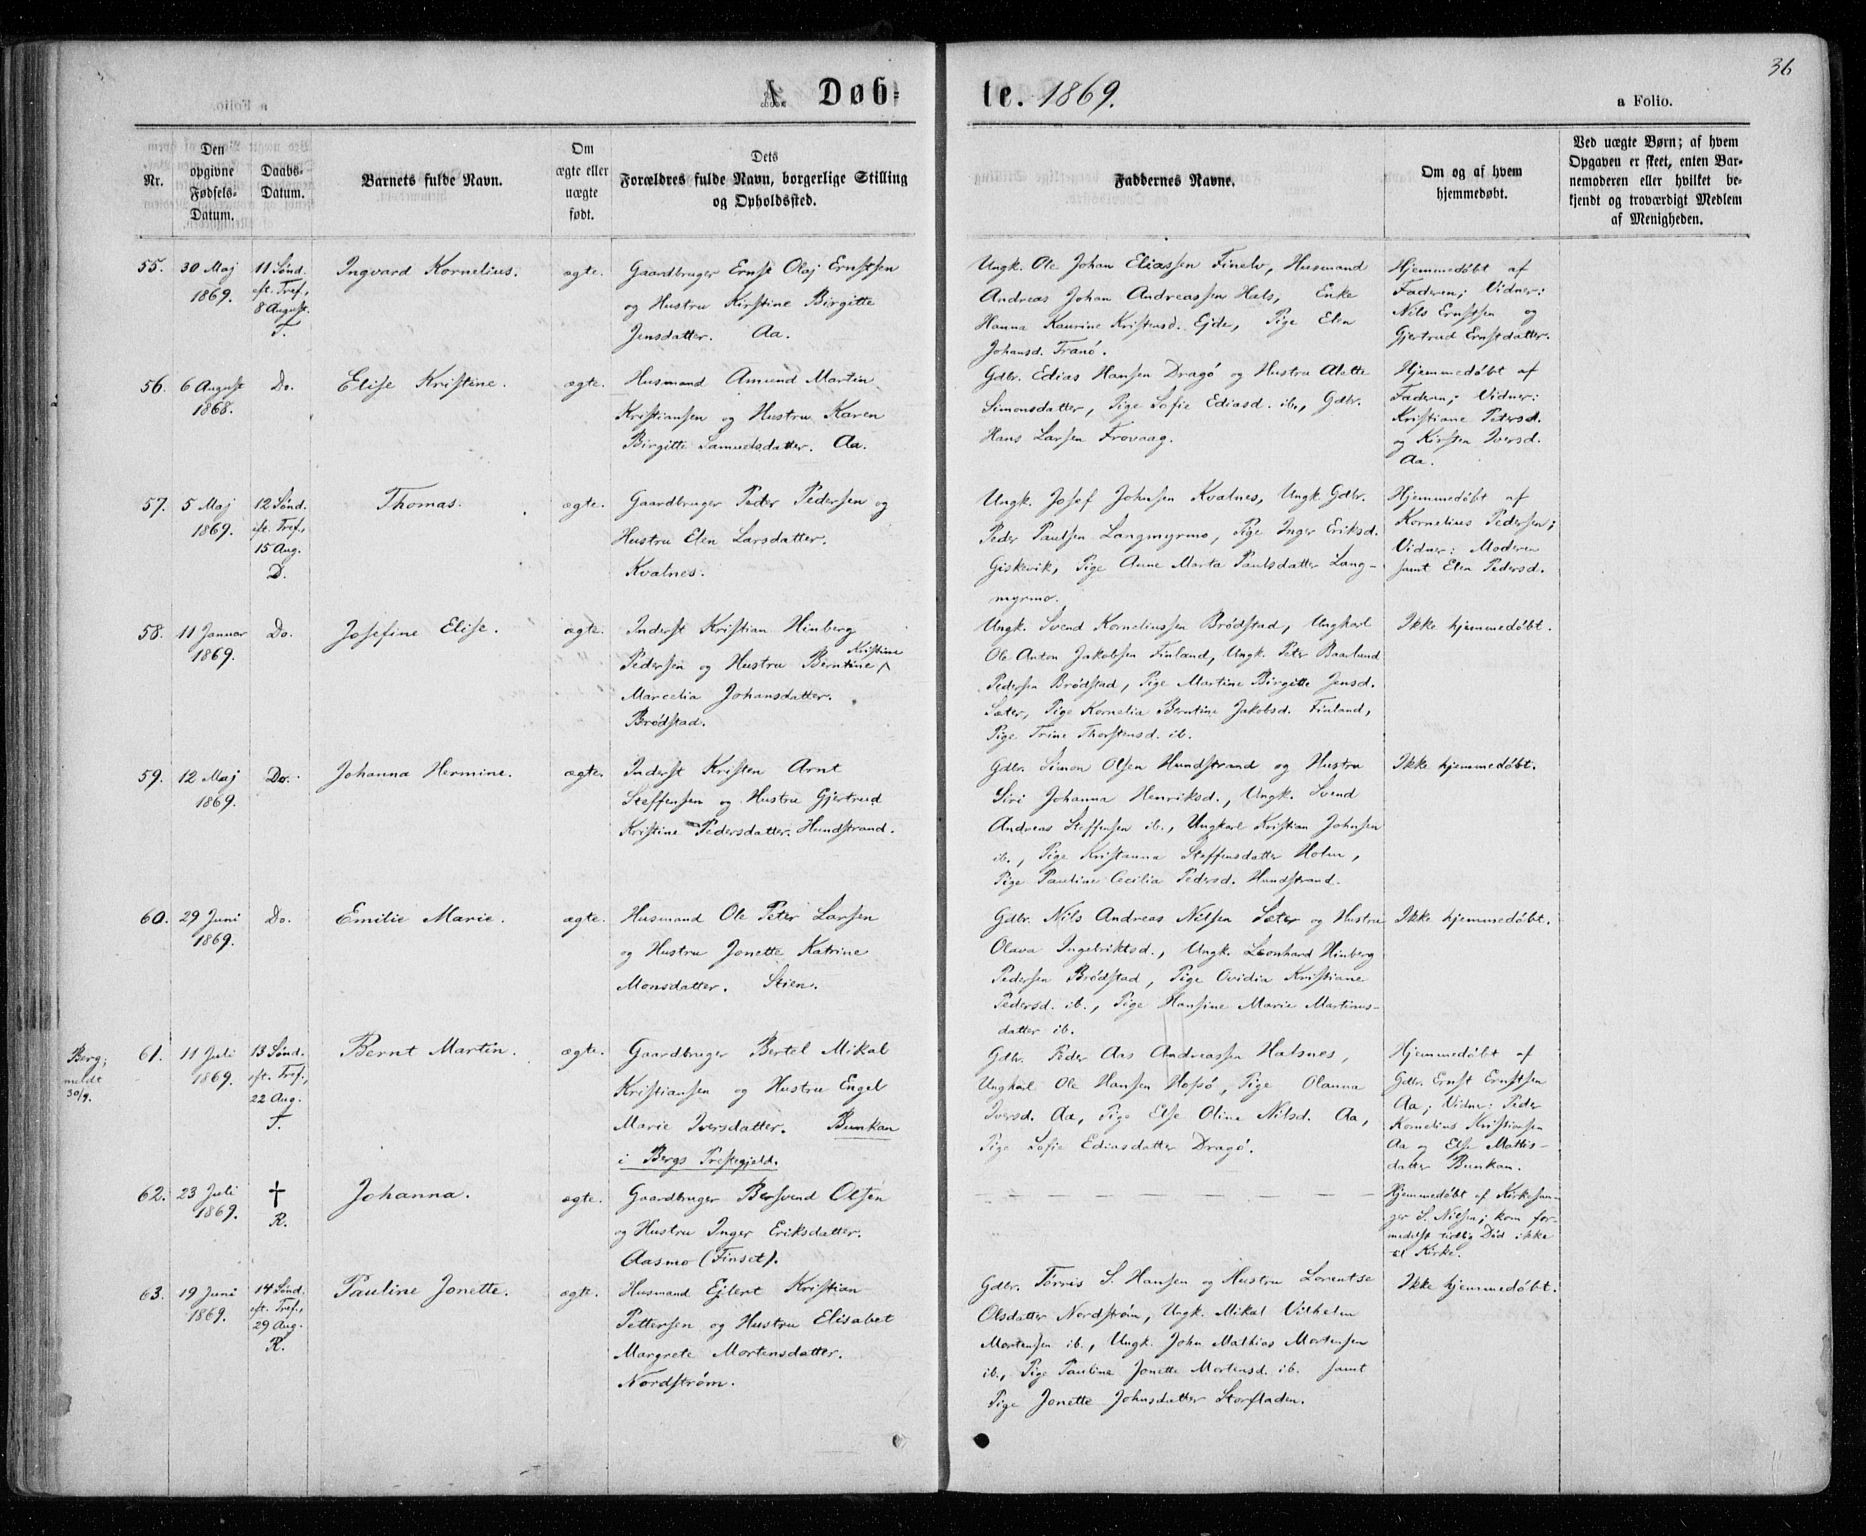 36
A. Døb= te. 1869.
a Folio.
Nr.
Den opgivne Fødsels-Datum.
Daabs-Datum.
Barnets fulde Navn.
Om ægte eller uægte født.
Dets Forældres fulde Navn, borgerlige Stilling og Opholdssted.
Faddernes Navne.
Om og af hvem hjemmedøbt.
Ved uægte Børn; af hvem Opgaven er skeet, enten Barnemoderen eller hvilket bekjendt og troværdigt Medlem af Menigheden.
55.
30 Maj
1869.
11 Sønd.
eft. Tref.,
8 August.
T.
Ingvard Kornelius.
ægte.
Gaardbruger Ernst Olaj Ernstsen
og Hustru Kirstine Birgitte
Jensdatter. Aa.
Ungk. Ole Johan Eliassen Finelv, Husmand
Andreas Johan Andreassen Hals, Enke
Hanna Kaurine Kristensd. Ejde, Pige Elen
Johansd. Tranø.
Hjemmedøbt af
Faderen; Vidner:
Nils Ernstsen og
Gjertrud Ernstdatter.
56.
6 August
1868.
Do.
Elise Kristine.
ægte.
Husmand Amund Martin
Kristiansen og Hustru Karen
Birgitte Samuelsdatter. Aa.
Gdbr. Edias Hansen Dragø og Hustru Alette
Simonsdatter, Pige Sofie Ediasd. ib., Gdbr.
Hans Larsen Frovaag.
Hjemmedøbt af
Faderen; Vidner:
Kristiane Petersd.
og Kirsten Iversd.
Aa.
57.
5 Maj
1869.
12 Sønd.
eft. Tref.,
15 Aug.
D.
Thomas.
ægte.
Gaardbruger Peder Pedersen og
Hustru Elen Larsdatter.
Kvalnes.
Ungk. Josef Johnsen Kvalnes, Ungk. Gdbr.
Peder Paulsen Langmyrmo, Pige Inger Eriksd.
Giskevik, Pige Anne Marta Paulsdatter Lang-
myrmo.
Hjemmedøbt af
Kornelius Pedersen;
Vidner: Moderen
samt Elen Pedersd.
58.
11 Januar
1869.
Do.
Josefine Elise.
ægte.
Inderst Kristian Hinberg
Pedersen og Hustru Berntine Kristine
Marcelia Johansdatter.
Brødstad.
Ungk. Svend Korneliussen Brødstad, Ungkarl
Ole Anton Jakobsen Finland, Ungk. Peter Baarlund
Pedersen Brødstad, Pige Martine Birgitte Jensd.
Sæter, Pige Kornelia Berntine Jakobsd. Finland,
Pige Trine Thorstensd. ib.
Ikke hjemmedøbt.
59.
12 Maj
1869.
Do.
Johanna Hermine.
ægte.
Inderst Kristen Arnt
Steffensen og Hustru Gjertrud
Kristine Pedersdatter. Hundstrand.
Gdbr. Simon Olsen Hundstrand og Hustru
Siri Johanna Henriksd., Ungk. Svend
Andreas Steffensen ib., Ungkarl Kristian Johnsen
ib., Pige Kristanna Steffensdatter Holm,
Pige Pauline Cecilia Pedersd. Hundstrand.
Ikke hjemmedøbt.
60.
29 Juni
1869.
Do.
Emilie Marie.
ægte.
Husmand Ole Peter Larsen
og Hustru Jonette Katrine
Monsdatter. Skien.
Gdbr. Nils Andreas Nilsen Sæter og Hustru
Olava Ingebriktsd., Ungk. Leonhard Hinberg
Pedersen Brødstad, Pige Ovidia Kristiane
Pedersd. ib., Pige Hansine Marie Martinus-
datter ib.
Ikke hjemmedøbt.
Berg;
meldt
30/9.
61.
11 Juli
1869.
13 Sønd.
eft. Tref.,
22 Aug.
T.
Bernt Martin.
ægte.
Gaardbruger Bertel Mikal
Kristiansen og Hustru Engel
Marie Iversdatter. Bunkan
i Bergs Prestegjeld.
Gdbr. Peder Aas Andreassen Halsnes,
Ungkarl Ole Hansen Hofsø, Pige Olanna
Iversd. Aa, Pige Else Oline Nilsd. Aa,
Pige Sofie Ediasdatter Dragø.
Hjemmedøbt af
Gdbr. Ernst Ernstsen
Aa; Vidner: Peder
Kornelius Kristiansen
Aa og Else Mattis-
datter Bunkan.
62.
23 Juli
1869.
†
R.
Johanna.
ægte.
Gaardbruger Bersvend Olsen
og Hustru Inger Eriksdatter.
Aasmo (Finset).
— — — — — — — — —
Hjemmedøbt af Kirkesan-
ger S. Nilsen; kom for-
medelst tidlig Død ikke
til Kirke.
63.
19 Juni
1869.
14 Sønd.
eft. Tref.,
29 Aug.
R.
Pauline Jonette.
ægte.
Husmand Ejlert Kristian
Pettersen og Hustru Elisabet
Margrete Mortensdatter.
Nordstrøm.
Gdbr. Tørris S. Hansen og Hustru Lorentse
Olsdatter Nordstrøm, Ungk. Mikal Vilhelm
Mortensen ib., Ungk. John Mathias Mortensen
ib., Pige Pauline Jonette Mortensd. ib. samt
Pige Jonette Johnsdatter Storfladen.
Ikke hjemmedøbt.